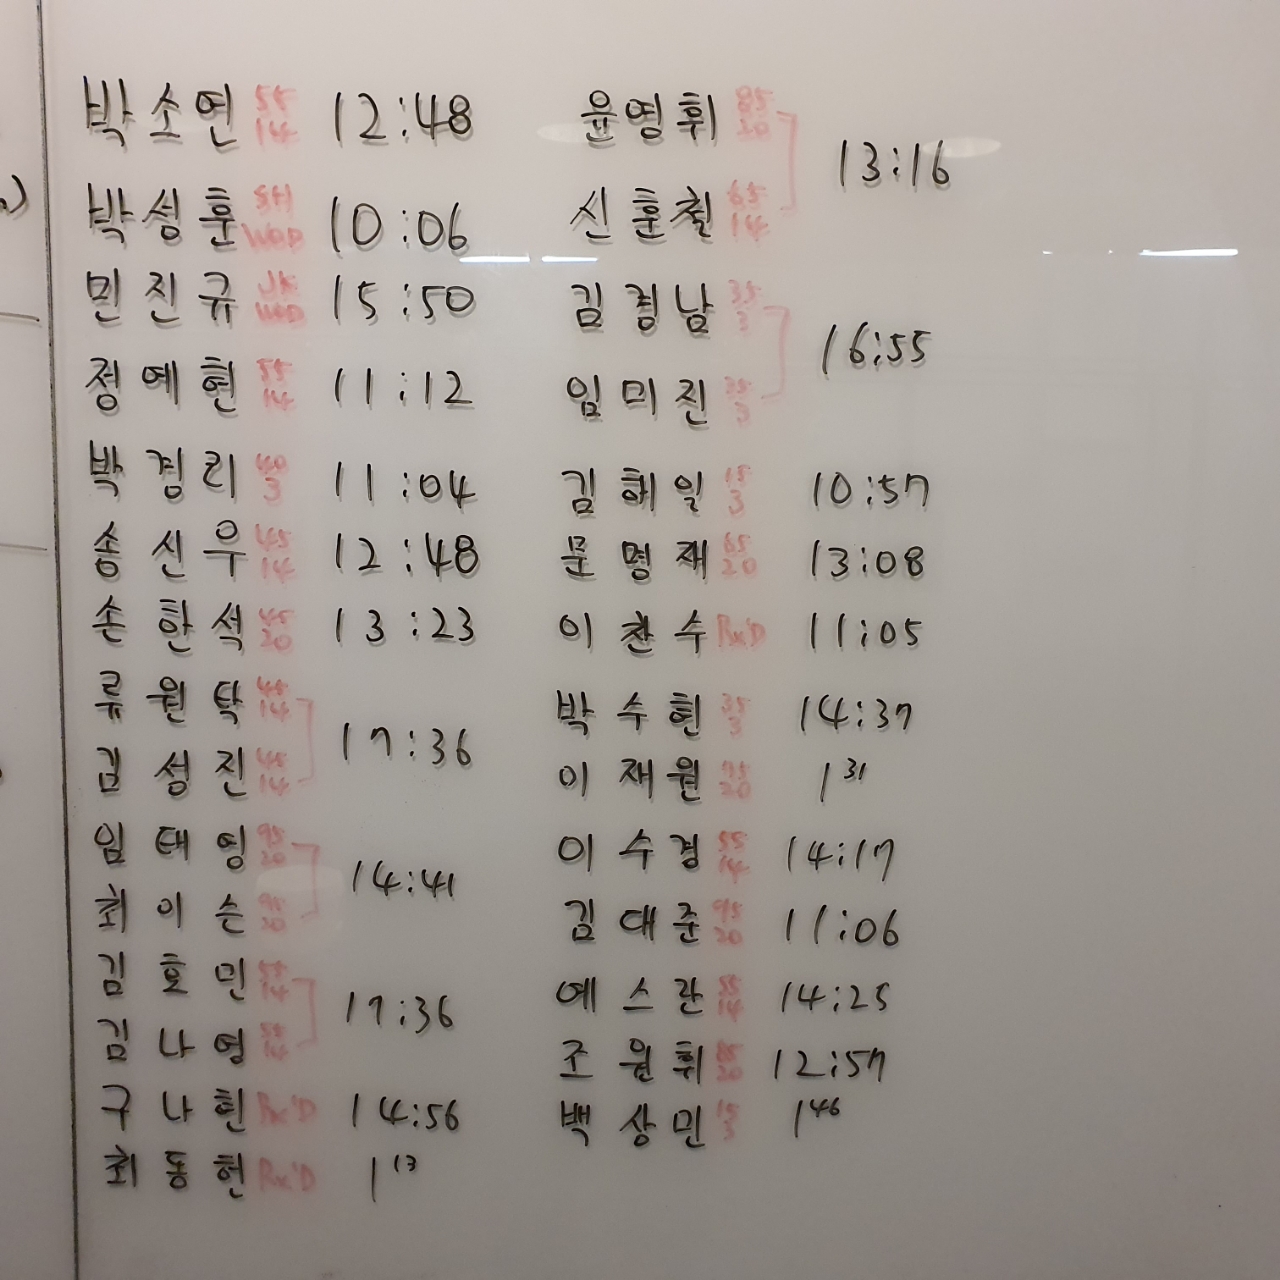 박소연 55 14 12:48
박성훈 SH WOD 10:06
민진규 JK WOD 15:50
정예현 55 14 11:12
박경리 40 3 11:04
송신우 45 14 12:48
손한석 45 20 13:23
류원탁 45 14
17:36
김성진 45 14
임태영 95 20
14:41
최이슨 95 20
김호민 55 14
17:36
김나영 55 14
구나현 Rx'D 14:56
최동현 Rx'D 1 13
윤영휘 85 20
13:16
신훈철 65 14
김경남 35 3
16:55
임미진 35 3
김해일 15 3 10:57
문명재 65 20 13:08
이찬수 Rx'D 11:05
박수현 35 3 14:37
이재원 95 20 1 31
이수경 55 14 14:17
김대준 95 20 11:06
예스란 55 14 14:25
조원휘 85 20 12:57
백상민 15 3 1 46